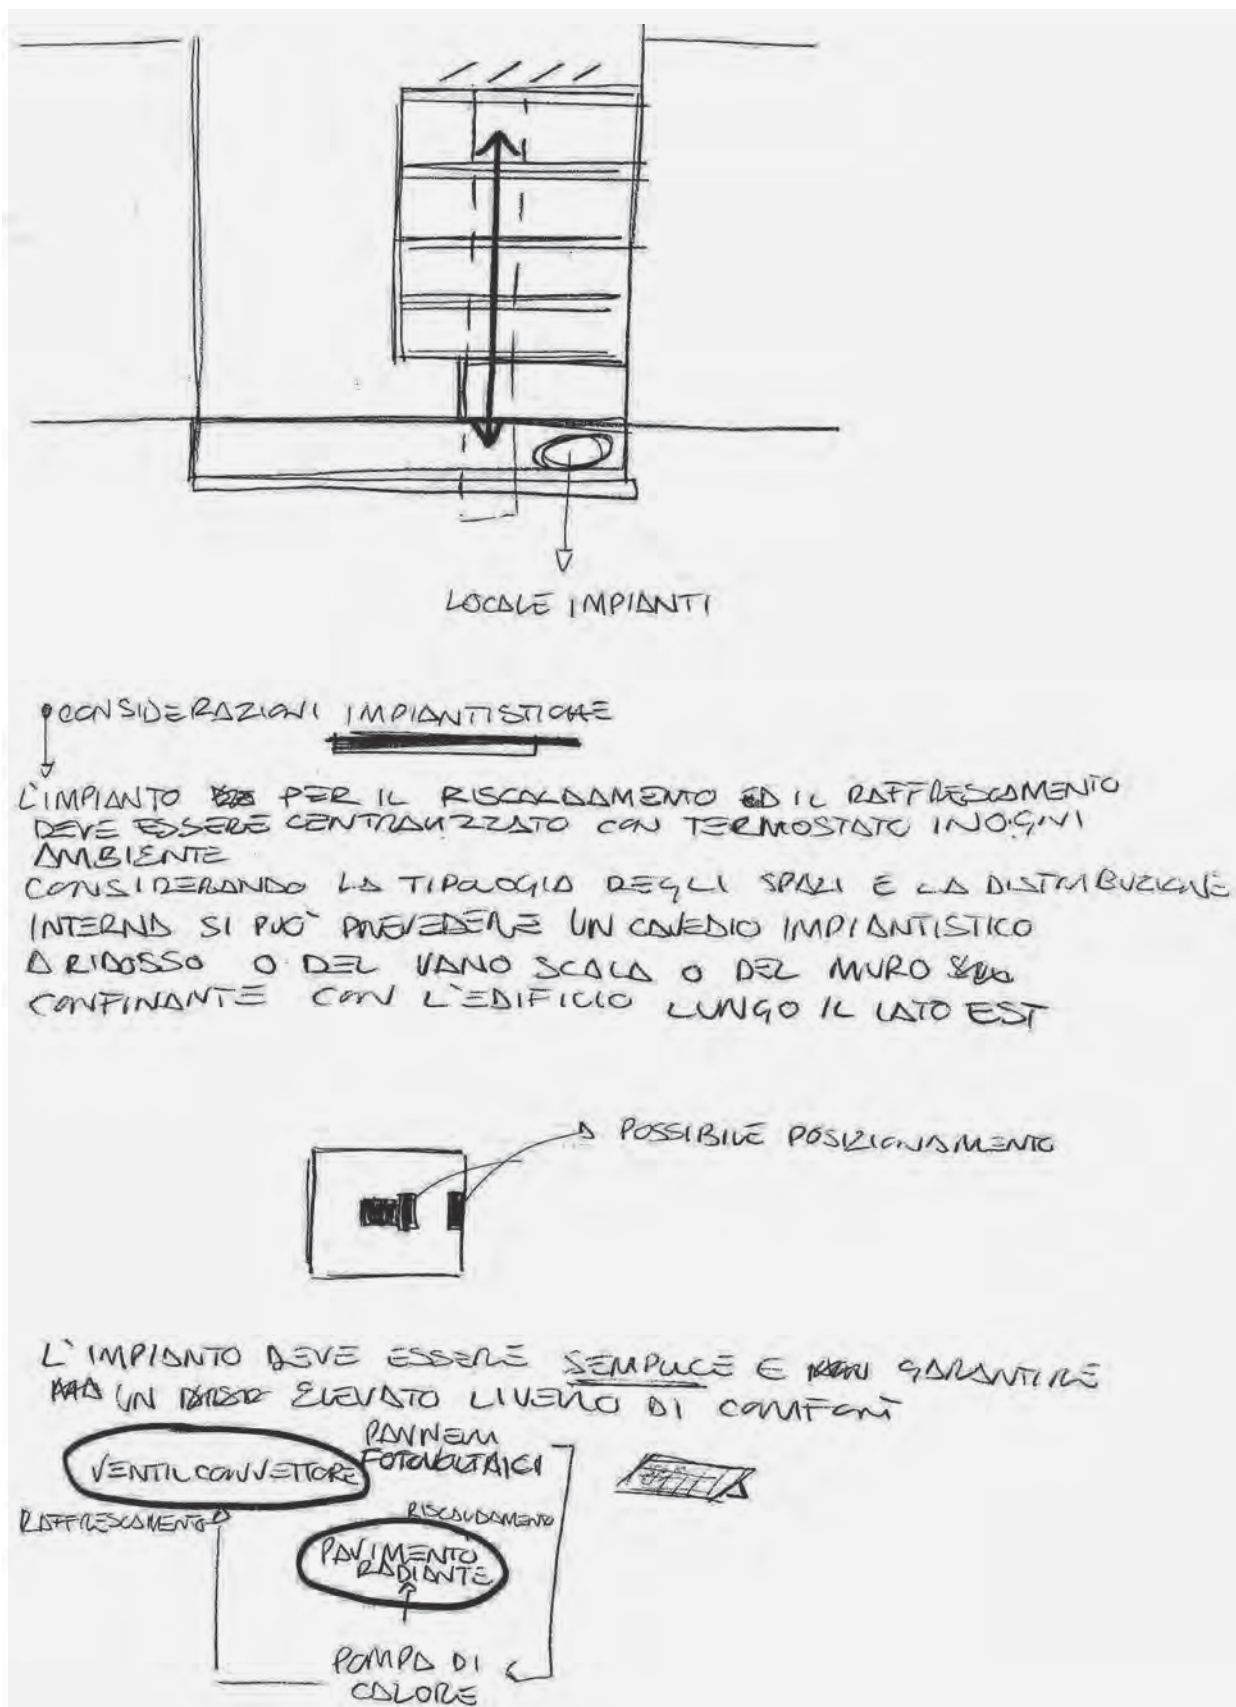 LOCALE IMPIANTI
CONSIDERAZIONI IMPIANTISTICHE
L'IMPIANTO PER IL RISCALDAMENTO ED IL RAFFRESCAMENTO
DEVE ESSERE CENTRALIZZATO CON TERMOSTATO IN OGNI
AMBIENTE
CONSIDERANDO LA TIPOLOGIA DEGLI SPAZI E LA DISTRIBUZIONE
INTERNA SI PUÒ PREVEDERE UN CAVEDIO IMPIANTISTICO
A RIDOSSO O DEL VANO SCALA O DEL MURO
CONFINANTE CON L'EDIFICIO LUNGO IL LATO EST
POSSIBILE POSIZIONAMENTO
L'IMPIANTO DEVE ESSERE SEMPLICE E GARANTIRE
UN ELEVATO LIVELLO DI COMFORT
PANNELLI
FOTOVOLTAICI
VENTILCONVETTORE
RAFFRESCAMENTO
RISCALDAMENTO
PAVIMENTO
RADIANTE
POMPA DI
CALORE